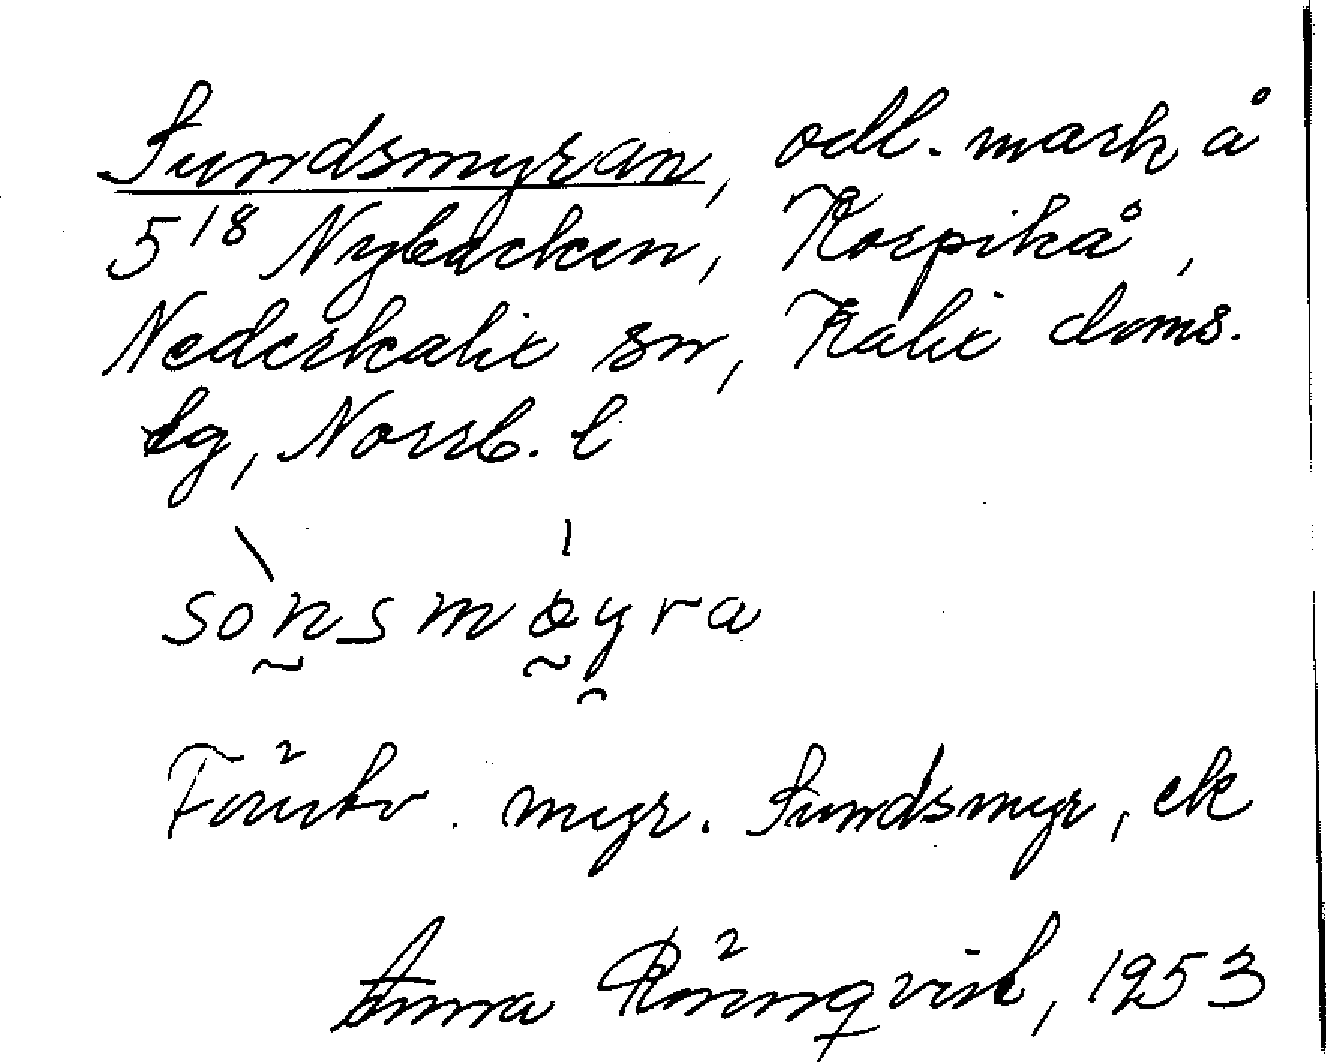 Sundsmyran, odl. mark å
5¹⁸ Nybacken, Korpikå,
Nederkalix sn, Kalix doms.
lg, Norrb. l
sònsmøyra
Förutv. myr. Sundsmyr, ek
Anna Rönnqvist, 1953